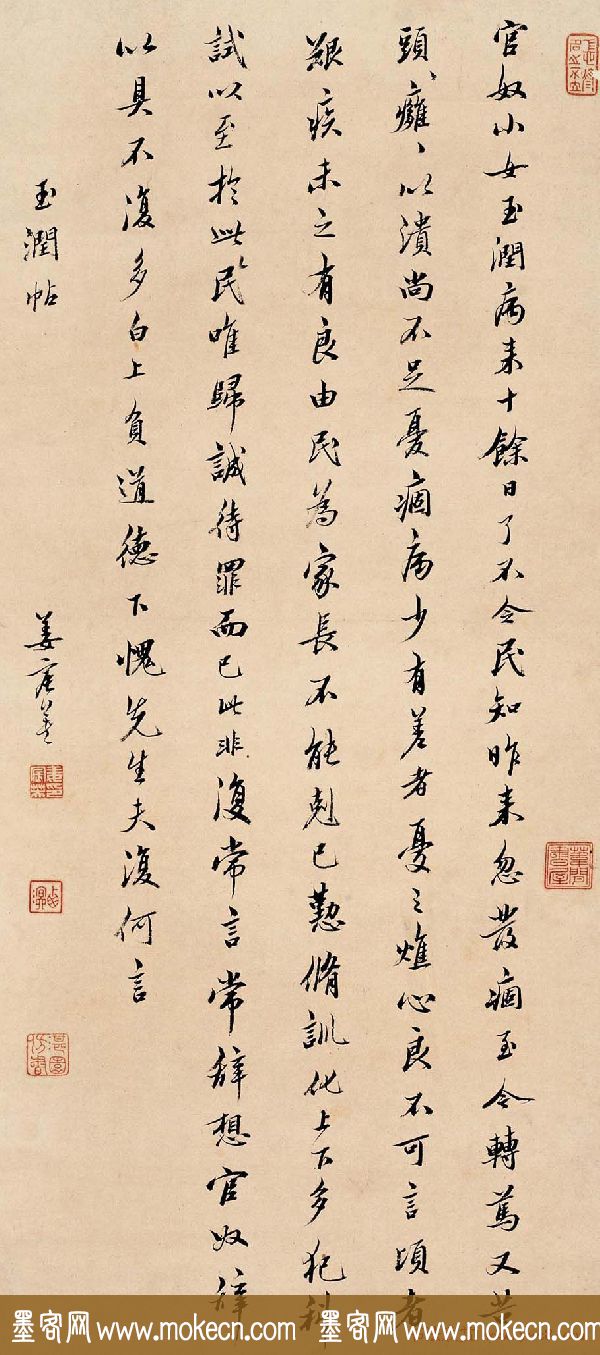 官奴小女玉潤病来十餘日了不令民知昨来忽發痼至今轉篤又苦
頭癰、以潰尚不足憂痼病少有差者憂之燋心良不可言頃者
艱疾未之有良由民為家長不能克己懃脩訓化上下多犯科
試以至於此民唯歸誠待罪而已此非復常言常辭想官奴辭
以具不復多白上負道德下愧先生夫復何言
玉潤帖
姜宸英
墨客网 www.mokecn.com 墨客网 www.mokecn.com